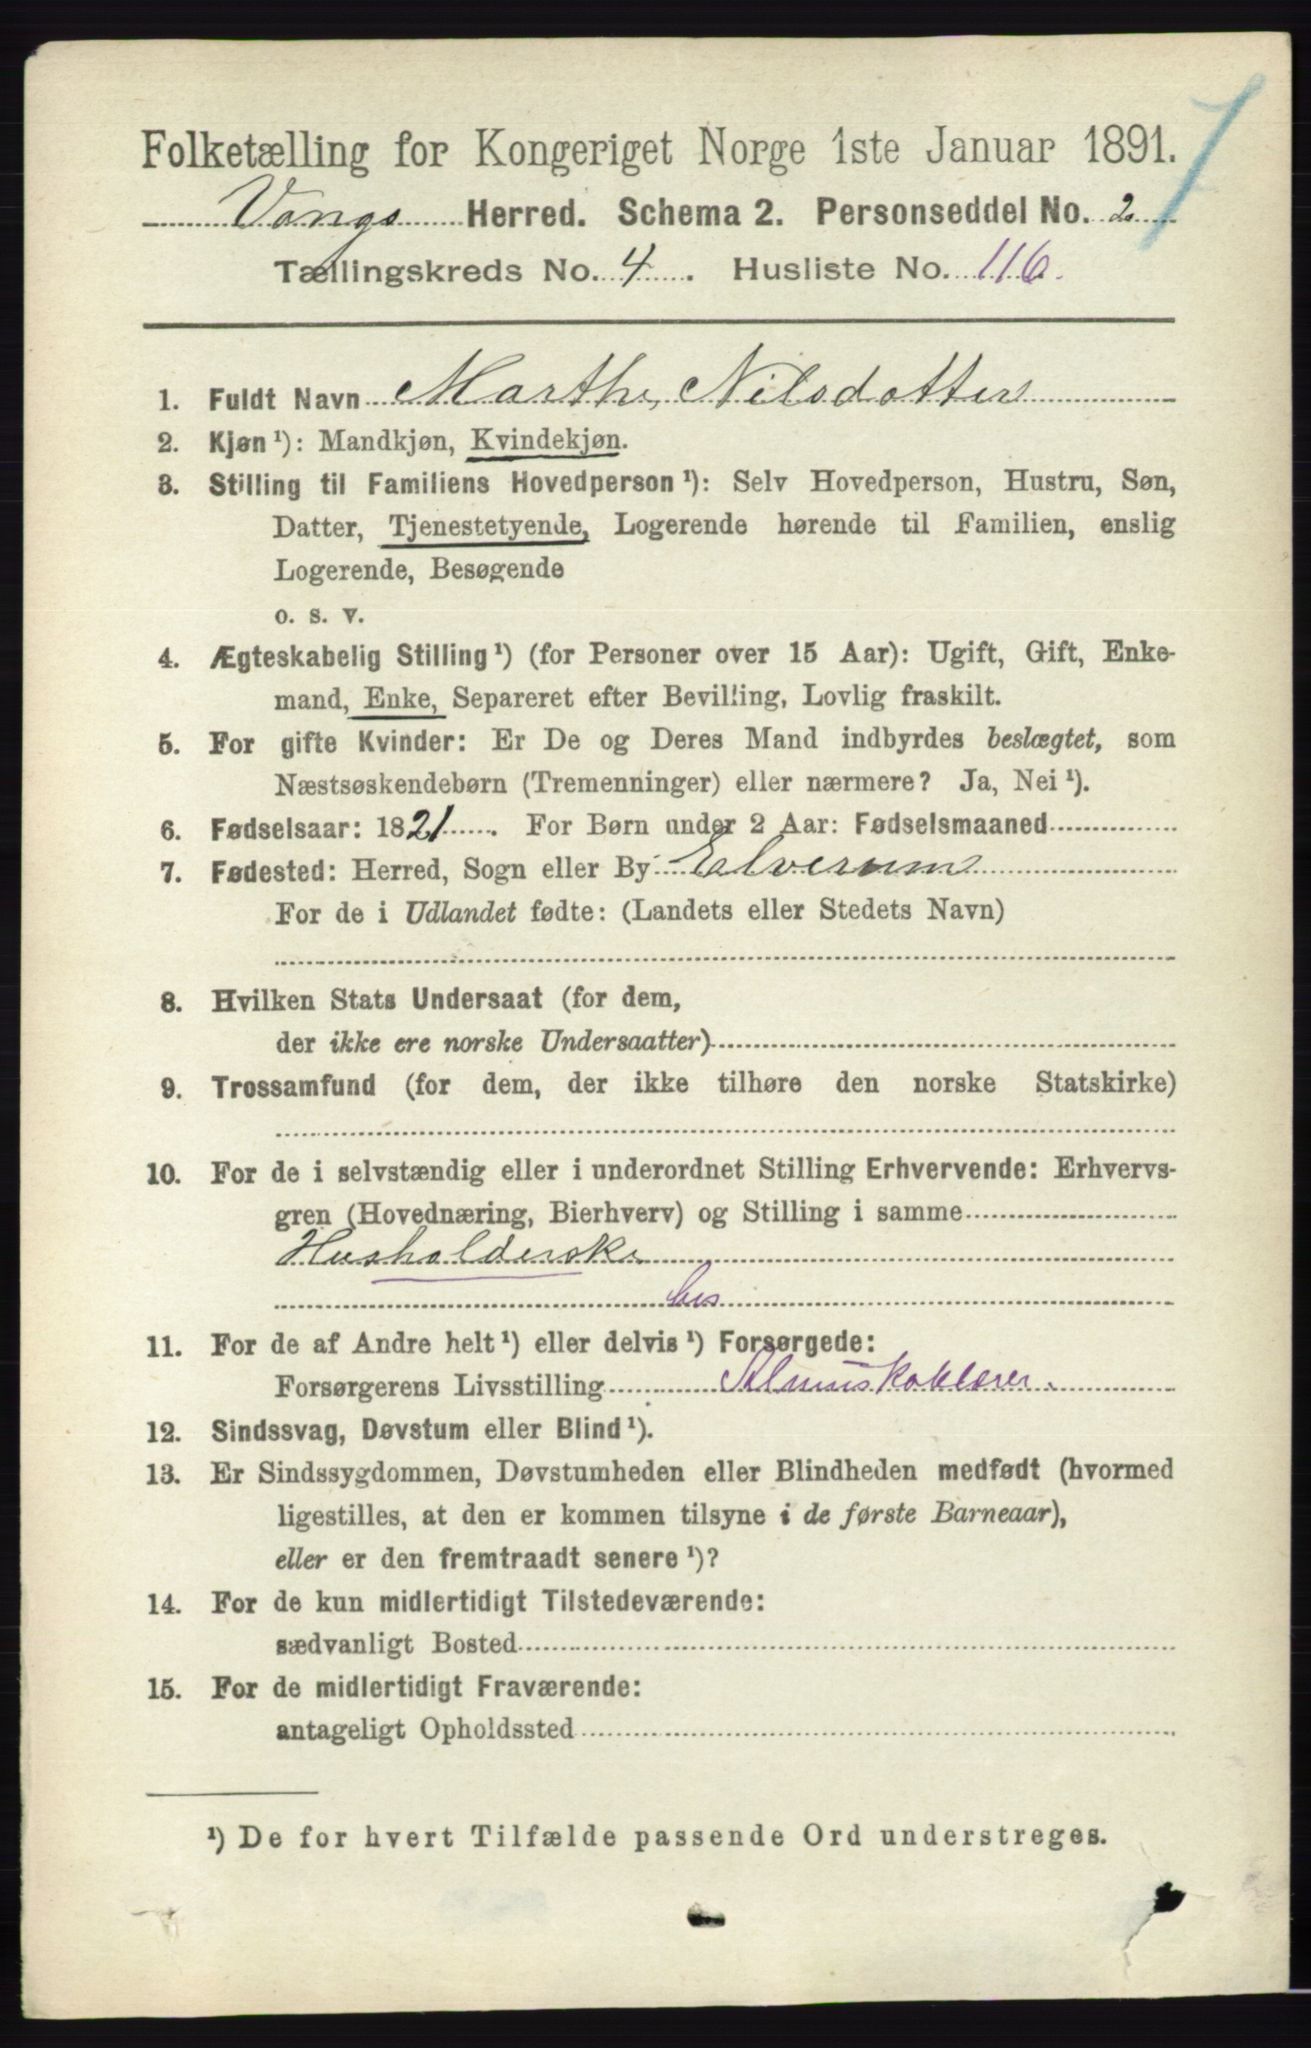 Folketælling for Kongeriget Norge 1ste Januar 1891.
Vangs Herred. Schema 2. Personseddel No. 2
Tællingskreds No. 4. Husliste No. 116.
1. Fuldt Navn Marthe Nilsdatter
2. Kjøn ¹): Mandkjøn, Kvindekjøn.
3. Stilling til Familiens Hovedperson ¹): Selv Hovedperson, Hustru, Søn,
Datter, Tjenestetyende, Logerende hørende til Familien, enslig
Logerende, Besøgende
o. s. v.
4. Ægteskabelig Stilling ¹) (for Personer over 15 Aar): Ugift, Gift, Enke-
mand, Enke, Separeret efter Bevilling, Lovlig fraskilt.
5. For gifte Kvinder: Er De og Deres Mand indbyrdes beslægtet, som
Næstsøskendebørn (Tremenninger) eller nærmere? Ja, Nei ¹).
6. Fødselsaar: 1821. For Børn under 2 Aar: Fødselsmaaned
7. Fødested: Herred, Sogn eller By Elverum
For de i Udlandet fødte: (Landets eller Stedets Navn)
8. Hvilken Stats Undersaat (for dem,
der ikke ere norske Undersaatter)
9. Trossamfund (for dem, der ikke tilhøre den norske Statskirke)
10. For de i selvstændig eller i underordnet Stilling Erhvervende: Erhvervs-
gren (Hovednæring, Bierhverv) og Stilling i samme
Husholderske
hos
11. For de af Andre helt ¹) eller delvis ¹) Forsørgede:
Forsørgerens Livsstilling
12. Sindssvag, Døvstum eller Blind ¹).
13. Er Sindssygdommen, Døvstumheden eller Blindheden medfødt (hvormed
ligestilles, at den er kommen tilsyne i de første Barneaar),
eller er den fremtraadt senere ¹)?
14. For de kun midlertidigt Tilstedeværende:
sædvanligt Bosted
15. For de midlertidigt Fraværende:
antageligt Opholdssted
¹) De for hvert Tilfælde passende Ord understreges.